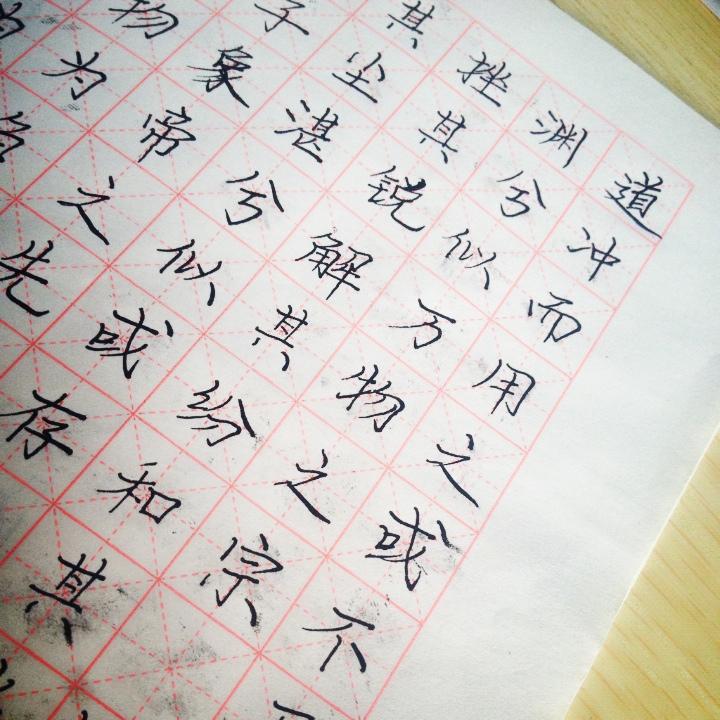 道冲而用之或不
渊兮似万物之宗
挫其锐解其纷和其
其尘湛兮似或存
子象帝之先
物为